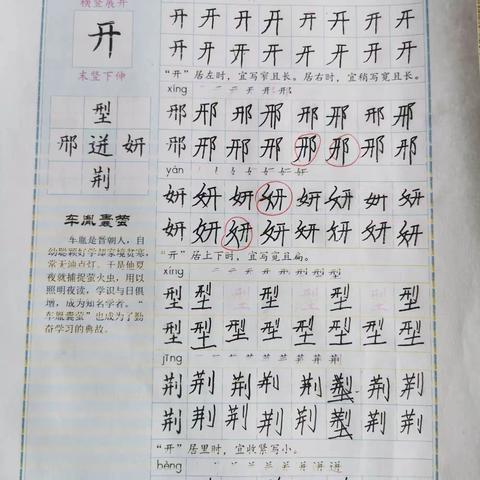 横竖展开
开
末竖下伸
型
邢 迸 妍
荆
车胤囊萤
车胤是晋朝人，自
幼聪颖好学却家境贫寒，
常无油点灯。于是他夏
夜就捕捉萤火虫，用以
照明夜读，学识与日俱
增，成为知名学者。“
车胤囊萤”也成为了勤
奋学习的典故。
开 开 开 开 开 开 开 开
开 开 开 开 开 开 开 开
“开”居左时，宜写窄且长。居右时，宜稍写宽且长。
xíng
邢 邢 邢 邢 邢 邢 邢 邢
邢 邢 邢 邢 邢 邢 邢 邢
yán
妍 妍 妍 妍 妍 妍 妍 妍
妍 妍 妍 妍 妍 妍 妍 妍
“开”居上下时，宜写宽且扁。
xíng
型 型 型 型 型 型 型 型
型 型 型 型 型 型 型 型
jīng
荆 荆 荆 荆 荆 荆 荆
荆 荆 荆 荆 荆 荆 荆
“开”居里时，宜收紧写小。
bèng